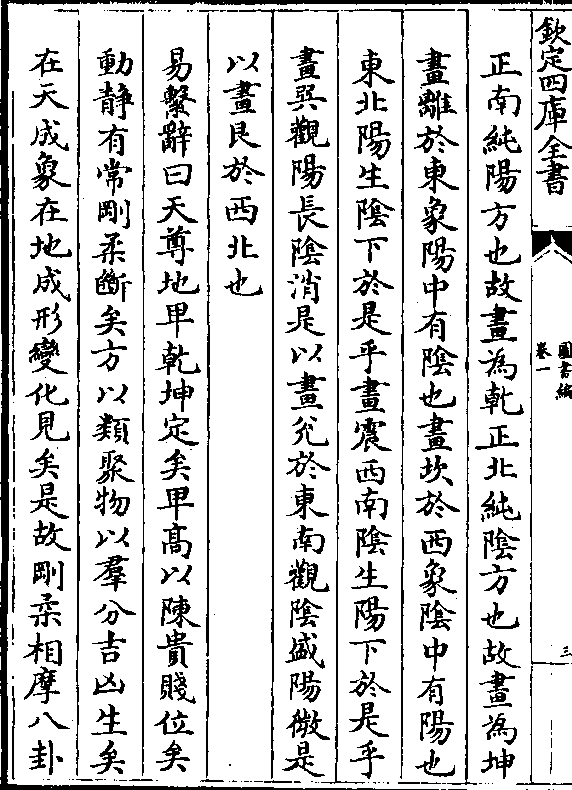 欽定四庫全書
圖書編
卷一
三
正南純陽方也故畫為乾正北純陰方也故畫為坤
畫離於東象陽中有陰也畫坎於西象陰中有陽也
東北陽生陰下於是乎畫震西南陰生陽下於是乎
畫巽觀陽長陰消是以畫兊於東南觀陰盛陽微是
以畫艮於西北也
易繫辭曰天尊地卑乾坤定矣卑髙以陳貴賤位矣
動静有常剛柔斷矣方以類聚物以羣分吉凶生矣
在天成象在地成形變化見矣是故剛柔相摩八卦